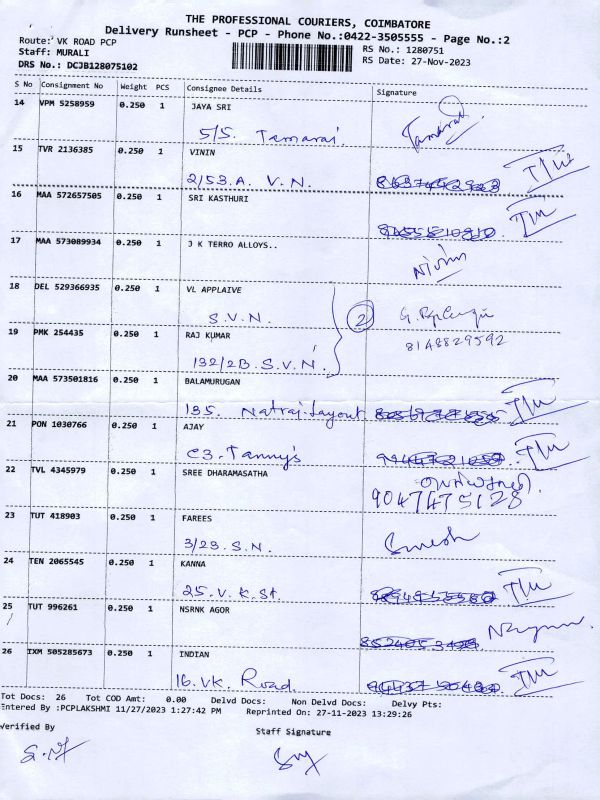 THE PROFESSIONAL COURIERS, COIMBATORE
Delivery Runsheet - PCP - Phone No.:0422-3505555 - Page No.:2
Route: VK ROAD PCP
RS No.: 1280751
Staff: MURALI
RS Date: 27-Nov-2023
DRS No.: DCJB128075102
S No Consignment No Weight PCS Consignee Details Signature
14 VPM 5258959 0.250 1 JAYA SRI
5/5. Tamarai. Tamarai
15 TVR 2136385 0.250 1 VININ
2/53.A. V.N.
16 MAA 572657505 0.250 1 SRI KASTHURI
17 MAA 573089934 0.250 1 J K TERRO ALLOYS..
18 DEL 529366935 0.250 1 VL APPLAIVE
S.V.N. 2
19 PMK 254435 0.250 1 RAJ KUMAR 8148829592
132/2B. S.V.N.
20 MAA 573501816 0.250 1 BALAMURUGAN
135. Natraj-Layout
21 PON 1030766 0.250 1 AJAY
C3. Tanny's
22 TVL 4345979 0.250 1 SREE DHARAMASATHA
9047475128
23 TUT 418903 0.250 1 FAREES
3/23. S.N.
24 TEN 2065545 0.250 1 KANNA
25. V. K. St.
25 TUT 996261 0.250 1 NSRNK AGOR
26 IXM 505285673 0.250 1 INDIAN
16. VK. Road.
Tot Docs: 26 Tot COD Amt: 0.00 Delvd Docs: Non Delvd Docs: Delvy Pts:
Entered By :PCPLAKSHMI 11/27/2023 1:27:42 PM Reprinted On: 27-11-2023 13:29:26
Verified By Staff Signature